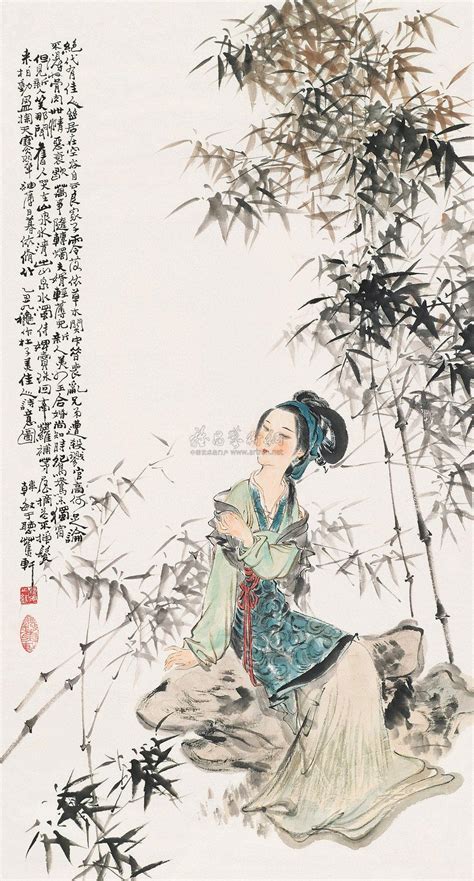 絕代有佳人幽居在空谷自云良家子零落依草木關中昔喪亂兄弟遭殺戮官高何足論
不得收骨肉世情惡衰歇萬事隨轉燭夫婿輕薄兒新人美如玉合昏尚知時鴛鴦不獨宿
但見新人笑那聞舊人哭在山泉水清出山泉水濁侍婢賣珠回牽蘿補茅屋摘花不插髮
采柏動盈掬天寒翠袖薄日暮依脩竹 乙丑九穐作杜子美佳人詩意圖
韓敏于聽軒